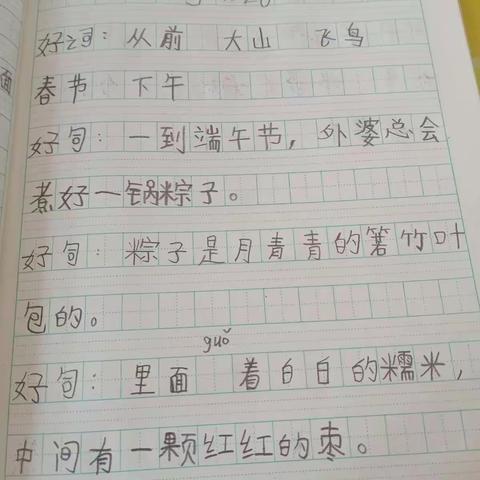 好词：从前 大山 飞鸟
春节 下午
好句：一到端午节，外婆总会
煮好一锅粽子。
好句：粽子是月青青的箬竹叶
包的。
guǒ
好句：里面 着白白的糯米，
中间有一颗红红的枣。